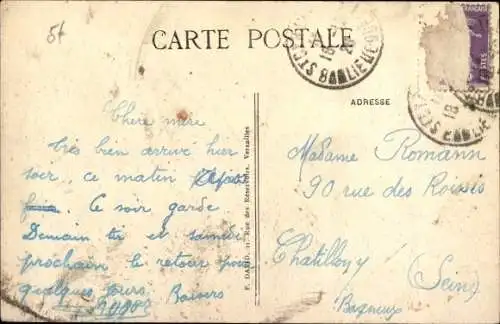 CARTE POSTALE
ADRESSE
Chère mère
très bien arrivé hier
soir, ce matin
Ce soir garde
Demain et samedi
prochain le retour pour
quelques jours. Baisers
P. DAVID, 11, Rue des Réservoirs, Versailles
Madame Romann
90 rue des
Chatillon
(Seine)
Bagneux